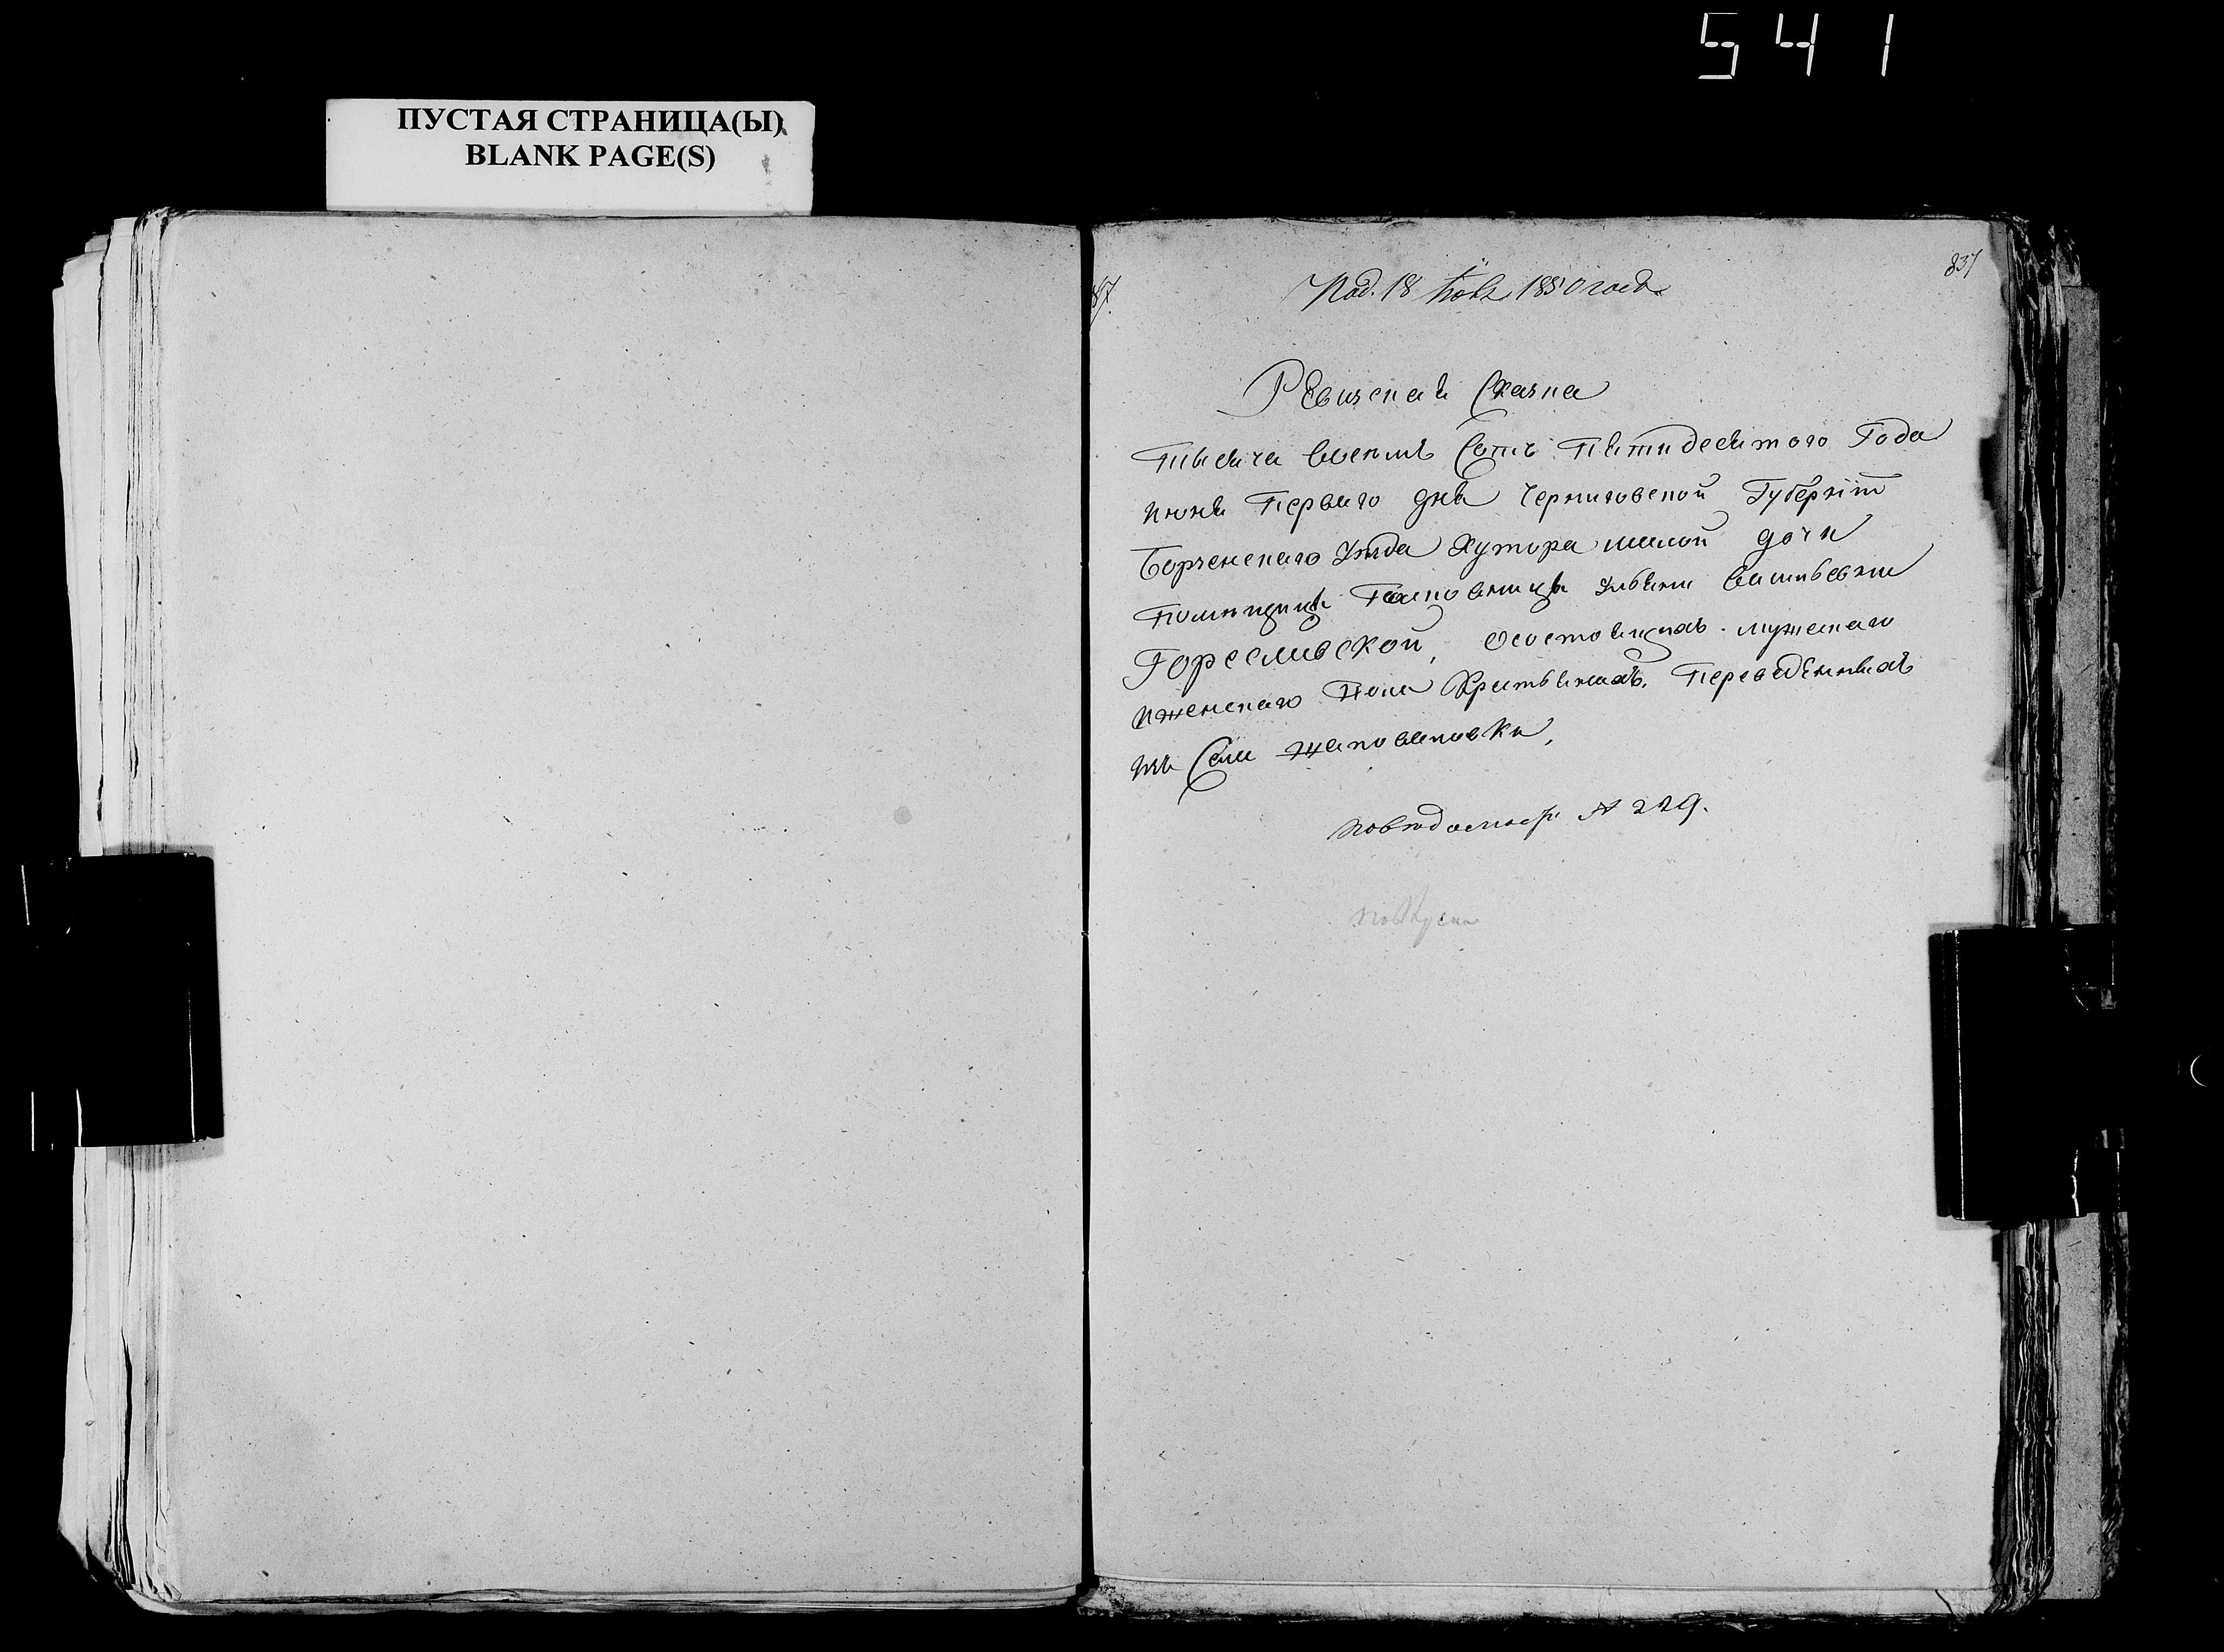 541
ПУСТАЯ СТРАНИЦА(Ы)
BLANK PAGE(S)
837
87.
Под. 18 1850 года
Ревизская Сказка
Тысяча восемь Сотъ Пятидесятого Года
июня Первого дня Черниговской Губерніи
Борзенского Уезда Хутора малой дочи
Помещицы Ульяни Васильевни
Гореславской, осостоящихъ мужескаго
иженскаго Пола Крестьянахъ, Переведенныхъ
изъ Села Шаповаловки,
№ 229.